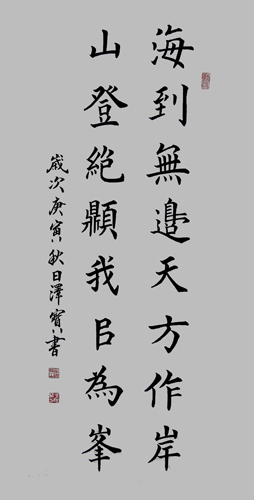 海到無邊天方作岸
山登絕顛我㠯為峯
歲次庚寅秋日澤寶書